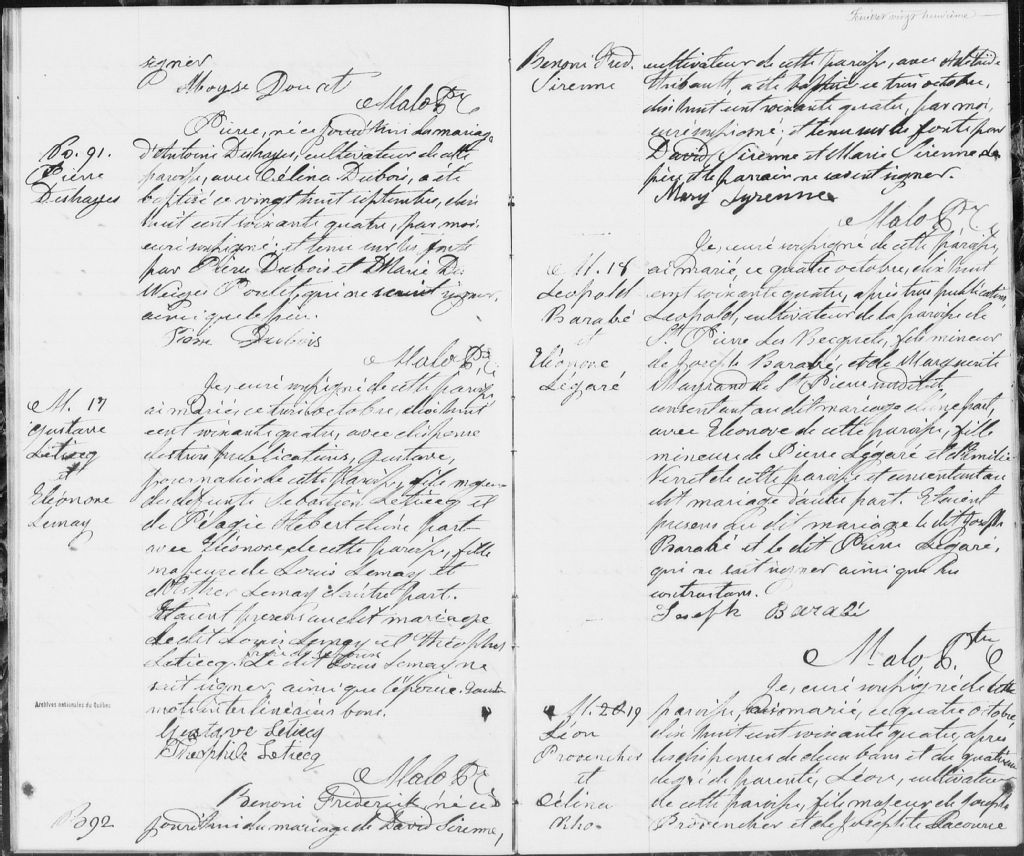 signer
Moyse Doucet
Malo Ptre
Bp. 91.
Pierre
Deshayes
Pierre, né ce jourd'hui du mariage
d'Antoine Deshayes, cultivateur de cette
paroisse, avec Célina Dubois, a été
baptisé ce vingt huit septembre, dix
huit cent soixante quatre, par moi,
curé soussigné, et tenu sur les fonts
par Pierre Dubois et Marie Des
Neiges Poulet qui ne savent signer,
ainsi que le père.
Pierre Dubois
Malo Ptre
M. 17
Gustave
Leticcq
et
Eléonore
Lemay
Je, curé soussigné de cette paroisse,
ai marié, ce trois octobre, dix huit
cent soixante quatre, avec dispense
des trois publications, Gustave,
journalier de cette paroisse, fils majeur
du défunt Sébastien Leticcq et
de Pélagie Hebert d'une part
avec Eléonore de cette paroisse, fille
majeure de Louis Lemay et
d'Esther Lemay d'autre part.
Etaient présens au dit mariage
le dit Louis Lemay et Théophile
Leticcq. Le dit Louis Lemay ne
sait signer, ainsi que l'épouse.
mots interlinéaires bons.
Gustave Leticcq
Théophile Leticcq
Malo Ptre
B 92
Benoni Frederick, né ce
jourd'hui du mariage de David Sirenne,
Archives nationales du Québec
Feuillet vingt neuvième
Benoni Fred.
Sirenne
cultivateur de cette paroisse, avec
Thibault, a été baptisé ce trois octobre,
dix huit cent soixante quatre, par moi,
curé soussigné, et tenu sur les fonts par
David Sirenne et Marie Sirenne. Le
père et le parrain ne savent signer.
Mary Syrenne
Malo Ptre
M. 18
Leopold
Barabé
et
Eléonore
Légaré
Je, curé soussigné de cette paroisse,
ai marié, ce quatre octobre, dix huit
cent soixante quatre, après trois publications,
Leopold, cultivateur de la paroisse de
St. Pierre Les Becquets, fils mineur
de Joseph Barabé, et de Marguerite
Mayrand de St Pierre susdit,
consentant au dit mariage d'une part,
avec Eléonore de cette paroisse, fille
mineure de Pierre Légaré et d'Emilie
de cette paroisse et consentant au
dit mariage d'autre part. Etaient
présens au dit mariage le dit Joseph
Barabé et le dit Pierre Légaré,
qui ne sait signer ainsi que les
contractans.
Joseph Barabé
Malo, Ptre
M. 19
Léon
Provencher
et
Célina
Rho
Je, curé soussigné de cette
paroisse, ai marié, ce quatre octobre,
dix huit cent soixante quatre, après
les dispenses de deux bans et du quatrième
degré de parenté, Léon, cultivateur
de cette paroisse, fils majeur de Joseph
Provencher et de Lacourse